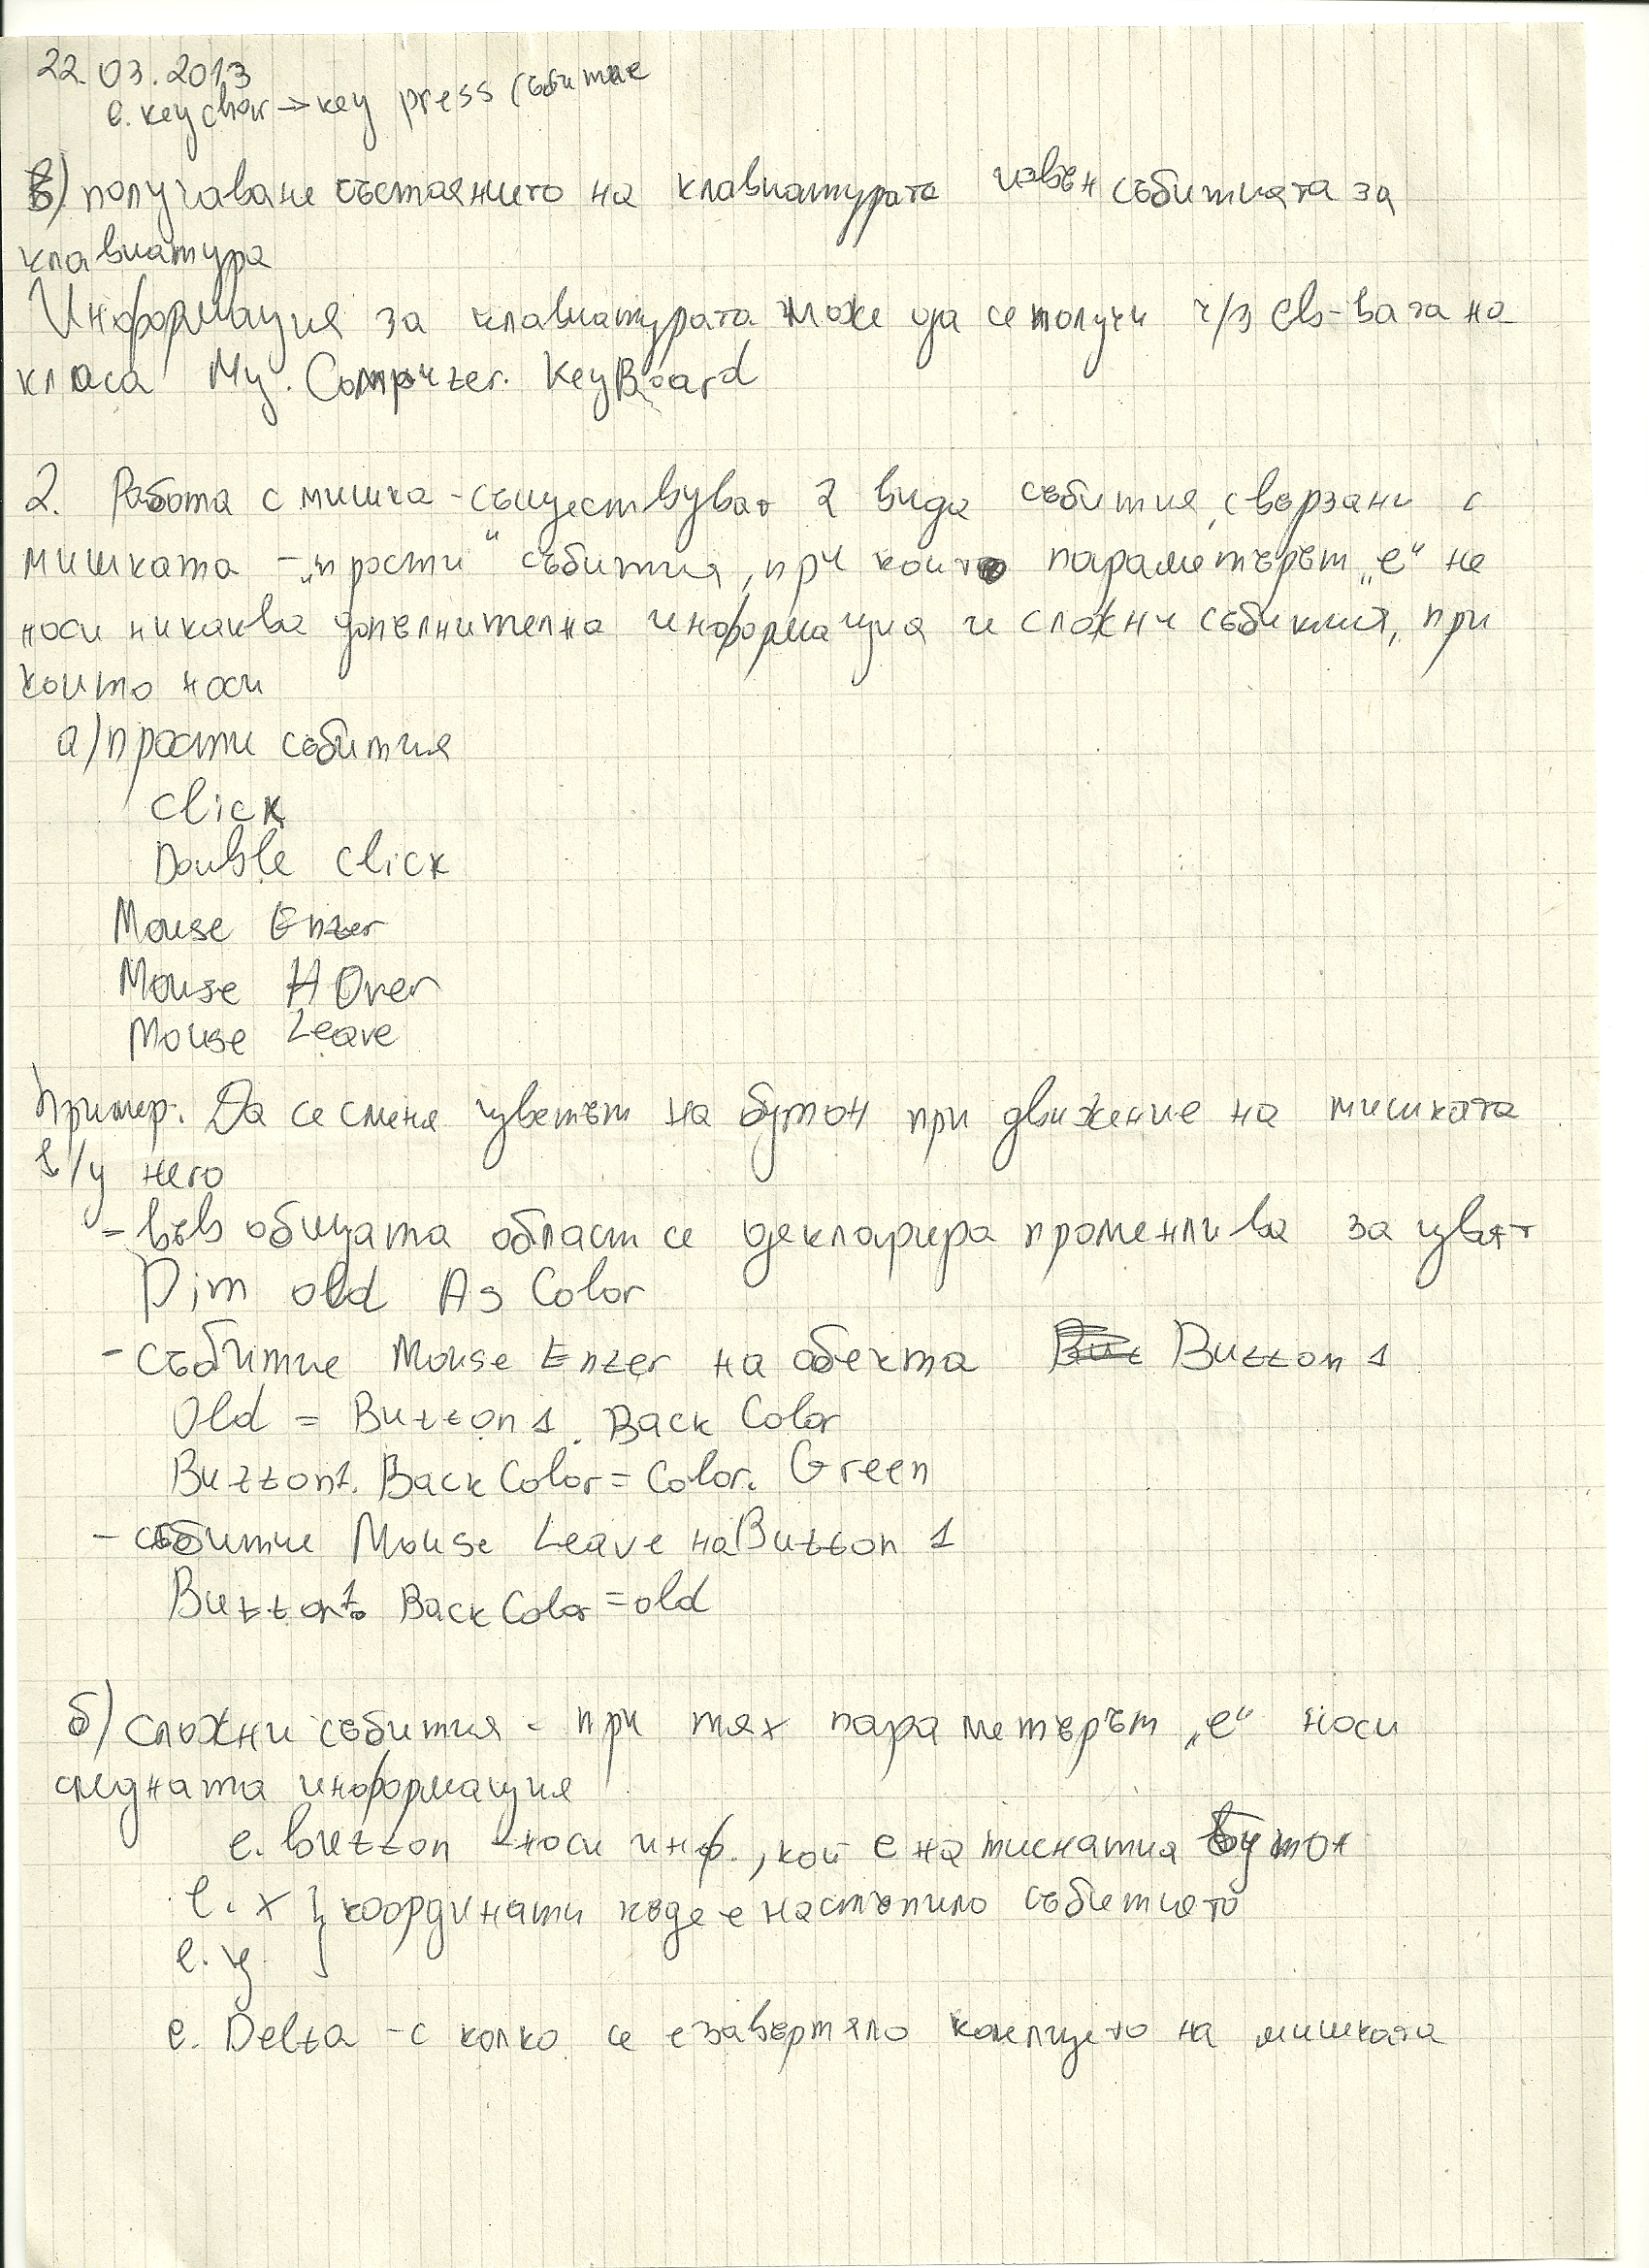 22.03.2013
e.keychar → key press (събитие
в) получаване състоянието на клавиатурата извън събитията за
клавиатура
Информация за клавиатурата може да се получи ч/з св-вата на
класа My.Computer.KeyBoard
2. Работа с мишка - съществуват 2 вида събития, свързани с
мишката - „прости“ събития, при които параметърът „e“ не
носи никаква допълнителна информация и сложни събития, при
които носи
а) прости събития
Click
Double click
Mouse Enter
Mouse HOver
Mouse Leave
Пример: Да се сменя цветът на бутон при движение на мишката
в/у него
- във общата област се декларира променлива за цвят
Dim old As Color
- събитие Mouse Enter на обекта But Button 1
Old = Button1.Back Color
Button1.BackColor = Color.Green
- събитие Mouse Leave на Button 1
Button1.BackColor = old
б) сложни събития - при тях параметърът „e“ носи
следната информация
e.button - носи инф., кой е натиснатия бутон
e.x } координати къде е настъпило събитието
e.y
e.Delta - с колко се е завъртяло колелцето на мишката